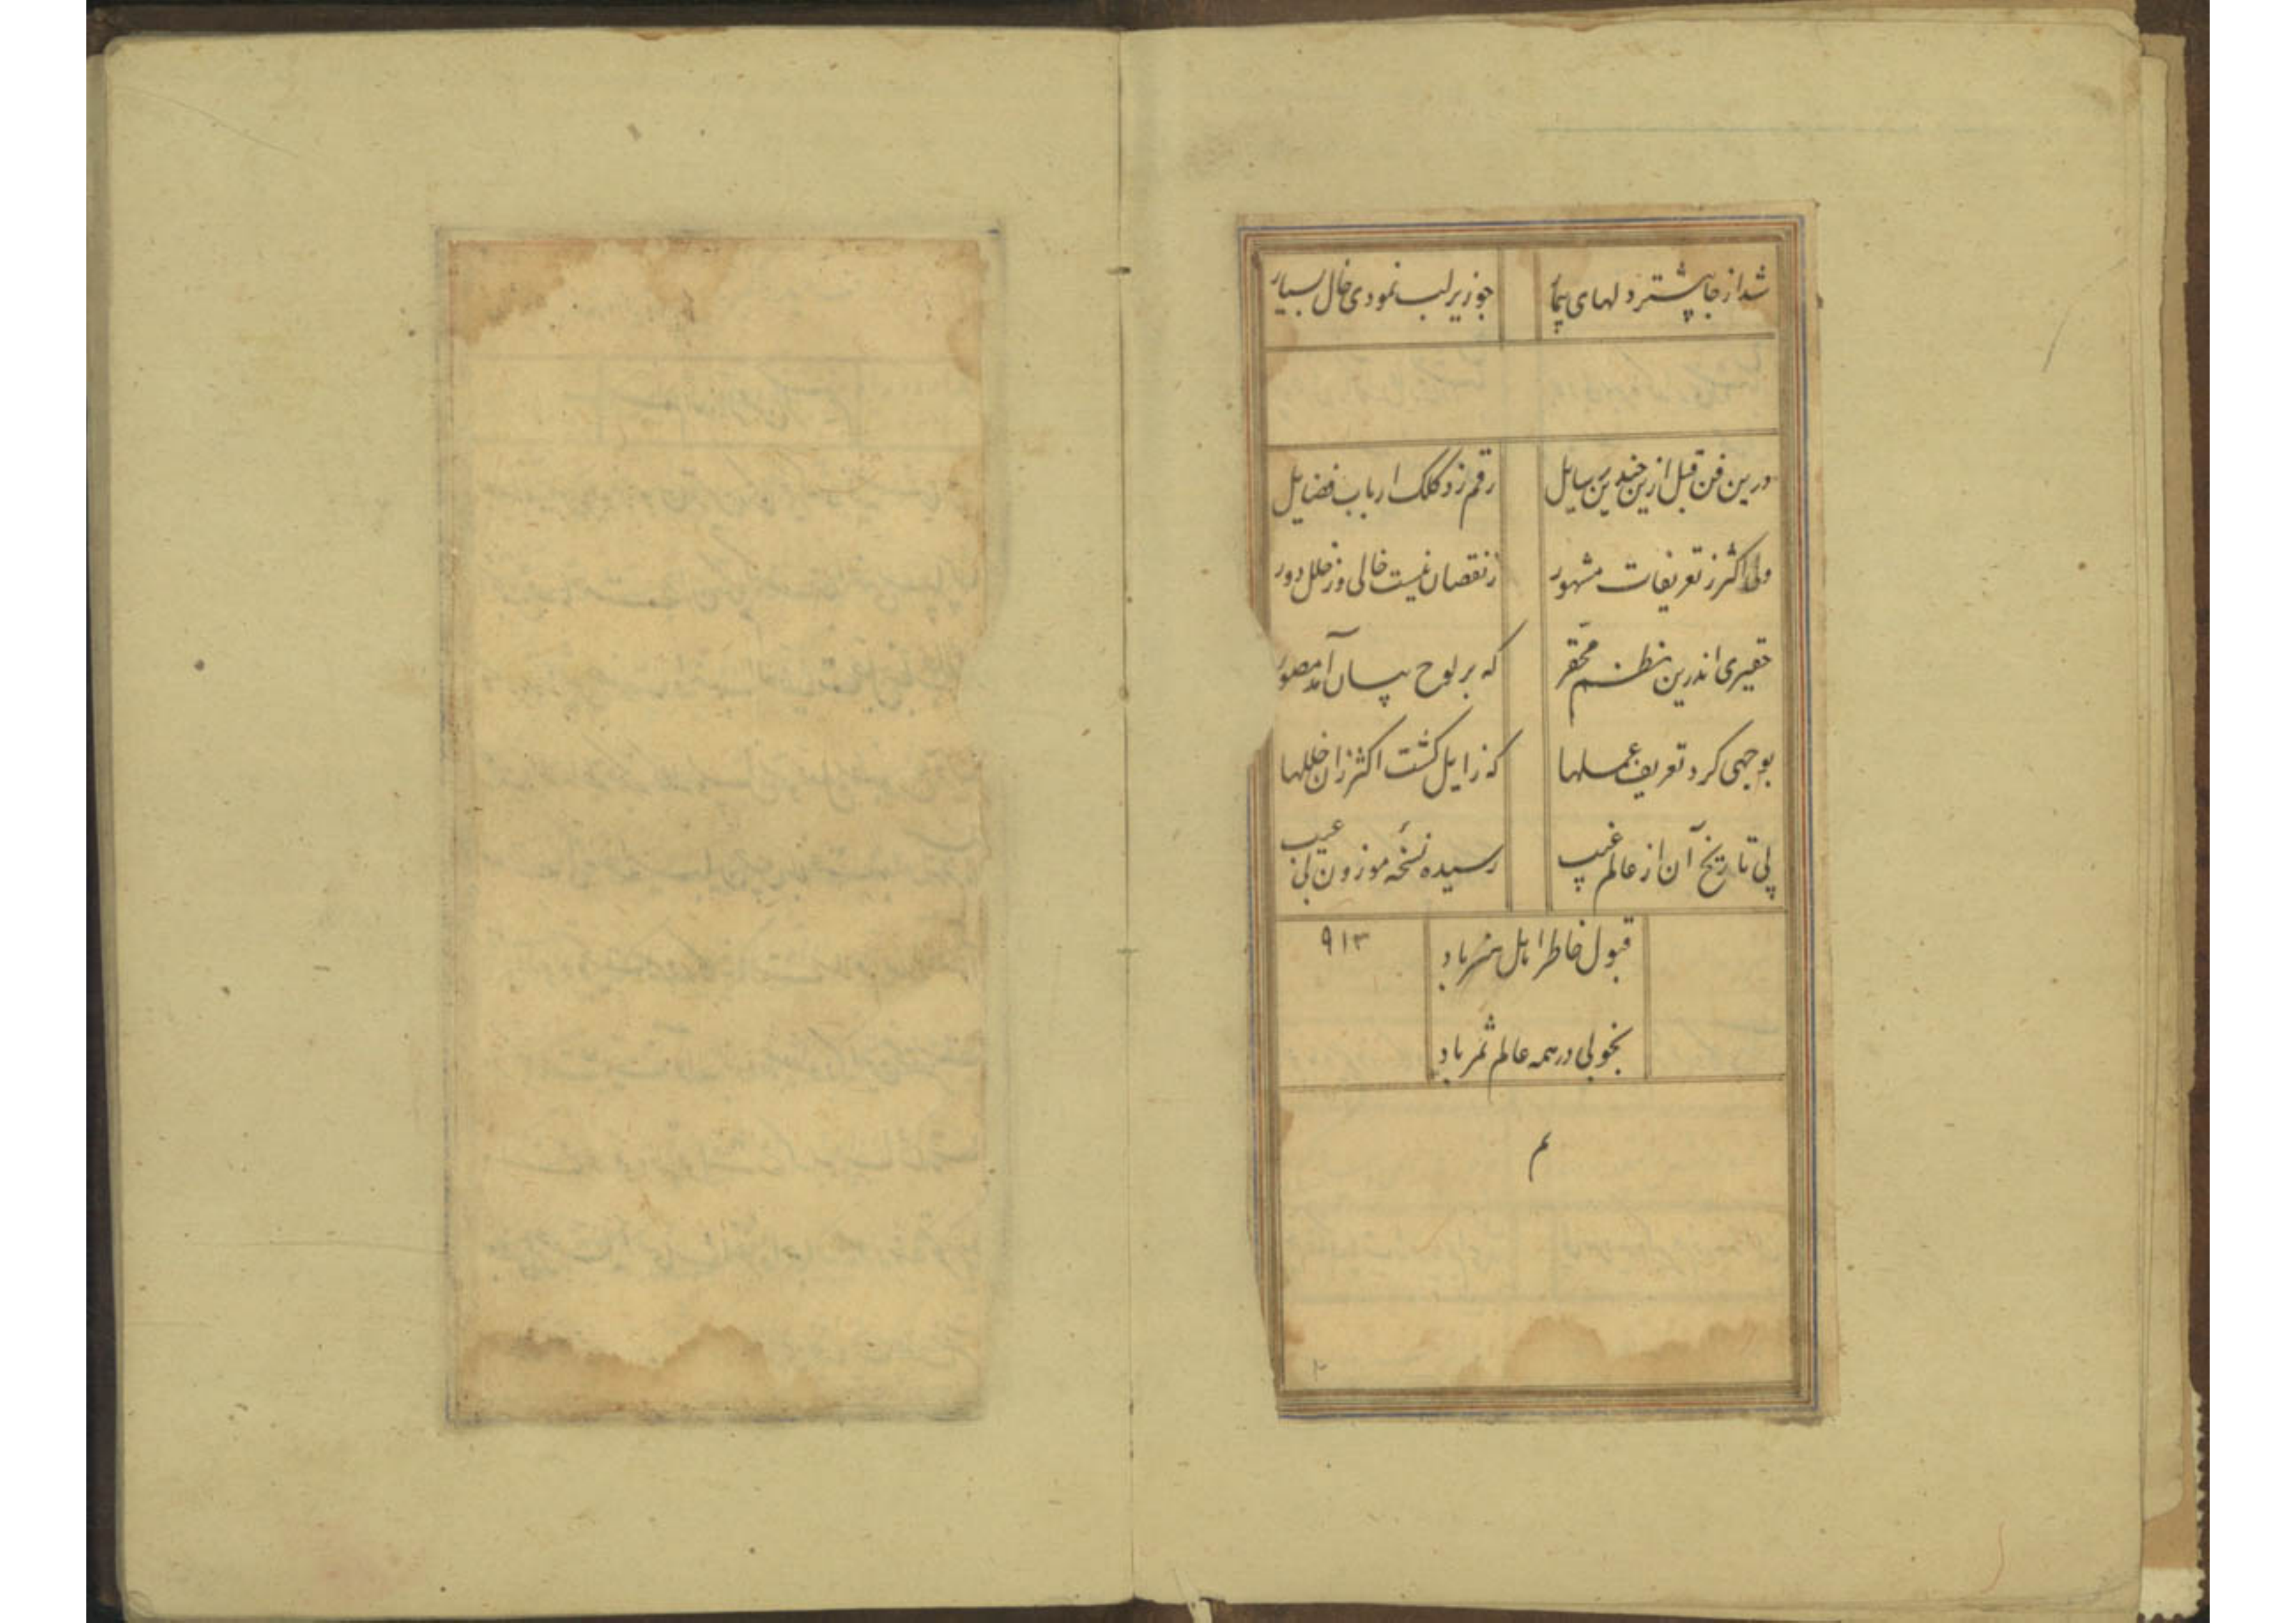 شد از جا پیشتر دلهای بیمار چو زیر لب نمودی خال بسیار
درین فن قبل ازین چندین رسایل رقم زد کلک ارباب فضایل
ولی اکثر ز تعریفات مشهور ز نقصان نیست خالی وز خلل دور
حقیری اندرین نظم محقر که بر لوح بیان آمد مصور
بوجهی کرد تعریف عملها که زایل گشت اکثر زان خللها
پی تاریخ آن از عالم غیب رسیده نسخهٔ موزون بی عیب
قبول خاطر اهل هنر باد ۹۱۳
بخوبی در همه عالم ثمر باد
تم